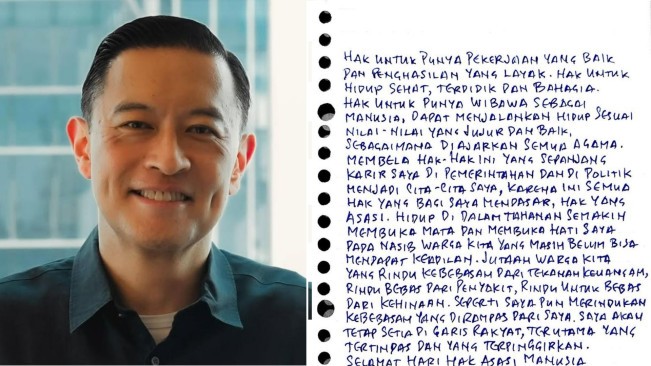 HAK UNTUK PUNYA PEKERJAAN YANG BAIK
DAN PENGHASILAN YANG LAYAK. HAK UNTUK
HIDUP SEHAT, TERDIDIK DAN BAHAGIA.
HAK UNTUK PUNYA WIBAWA SEBAGAI
MANUSIA, DAPAT MENJALANKAN HIDUP SESUAI
NILAI-NILAI YANG JUJUR DAN BAIK,
SEBAGAIMANA DIAJARKAN SEMUA AGAMA.
MEMBELA HAK-HAK INI YANG SEPANJANG
KARIR SAYA DI PEMERINTAHAN DAN DI POLITIK
MENJADI CITA-CITA SAYA, KARENA INI SEMUA
HAK YANG BAGI SAYA MENDASAR, HAK YANG
ASASI. HIDUP DI DALAM TAHANAN SEMAKIN
MEMBUKA MATA DAN MEMBUKA HATI SAYA
PADA NASIB WARGA KITA YANG MASIH BELUM BISA
MENDAPAT KEADILAN. JUTAAN WARGA KITA
YANG RINDU KEBEBASAN DARI TEKANAN KEUANGAN,
RINDU BEBAS DARI PENYAKIT, RINDU UNTUK BEBAS
DARI KEHINAAN. SEPERTI SAYA PUN MERINDUKAN
KEBEBASAN YANG DIRAMPAS DARI SAYA. SAYA AKAN
TETAP SETIA DI GARIS RAKYAT, TERUTAMA YANG
TERTINDAS DAN YANG TERPINGGIRKAN.
SELAMAT HARI HAK ASASI MANUSIA